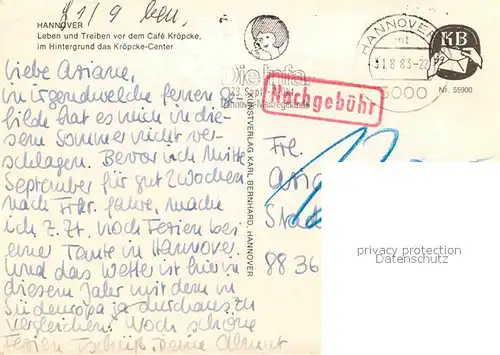 HANNOVER
Leben und Treiben vor dem Café Kröpcke,
im Hintergrund das Kröpcke-Center
Liebe Ariane,
in irgendwelche fernen Ge-
filde hat es mich in die-
sem Sommer nicht ver-
schlagen. Bevor ich Mitte
September für gut 2 Wochen
nach Frkr. fahre, mache
ich z. Zt. noch Ferien bei
einer Tante in Hannover
und das Wetter ist hier in
diesem Jahr mit dem in
Südeuropa ja durchaus zu
vergleichen. Noch schöne
Ferien Tschüß Deine Almut
KUNSTVERLAG KARL BERNHARD, HANNOVER
HANNOVER
31.8.83-22
3000
Die Infa
Nachgebühr
KB
Nr. 55900
Frl.
Stadt
8836
privacy protection
Datenschutz